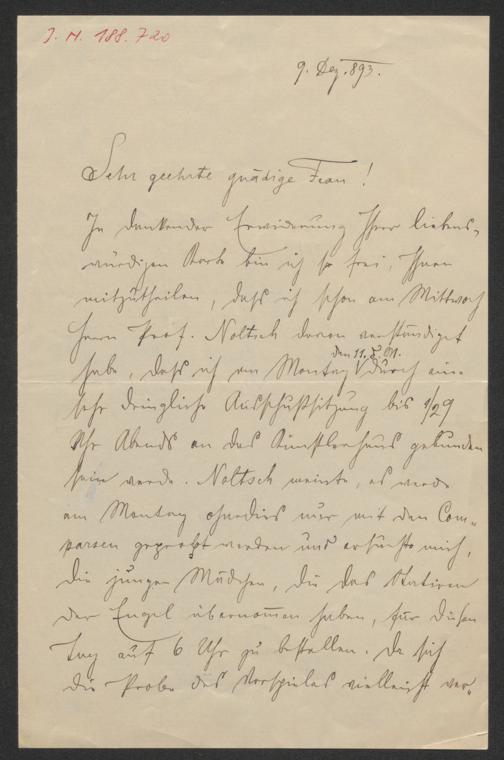 J. N. 188.720
9. Dez. 893.
Sehr geehrte gnädige Frau!
In dankender Erwiderung Ihrer liebens-
würdigen Karte bin ich so frei, Ihnen
mitzutheilen, daß ich schon am Mittwoch
Herrn Prof. Noltsch davon verständigt
den 11. d. M.
habe, daß ich am Montag durch eine
sehr dringliche Ausschußsitzung bis 1/2 9
Uhr Abends an das Künstlerhaus gebunden
sein werde. Noltsch meinte, es werde
am Montag ohnedies nur mit den Com-
parsen geprobt werden und ersuchte mich,
die jungen Mädchen, die das Statiren
der Engel übernommen haben, für diesen
Tag auf 6 Uhr zu bestellen. Da sich
die Probe des Vorspieles vielleicht ver-